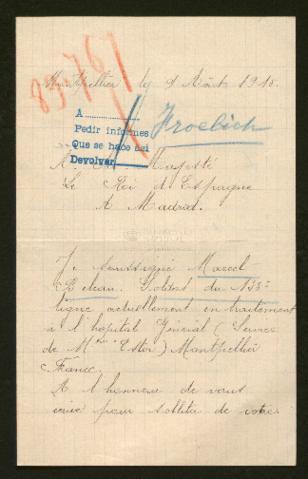 Montpellier le 9 Août 1915.
83767
A
Pedir informes
Que se hace así
Devolver
Froelich
A Sa Majesté
Le Roi d'Espagne
A Madrid.
Je soussigné Marcel
soldat du
ligne actuellement en traitement
à l'hôpital Général (Service
de Mr Estor) Montpellier
France.
A l'honneur de vous
écrire pour solliter de votre